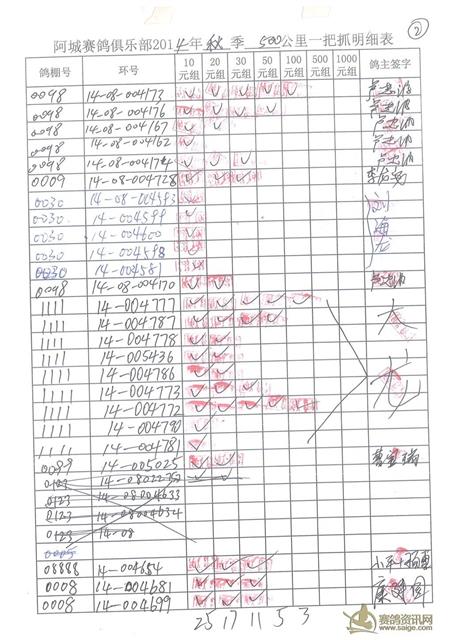 ②
阿城赛鸽俱乐部2014年秋季 500公里一把抓明细表
鸽棚号 环号 10元组 20元组 30元组 50元组 100元组 300元组 500元组 1000元组 鸽主签字
0098 14-08-004173 ✓ ✓ ✓ ✓ ✓
0098 14-08-004176 ✓ ✓ ✓ ✓
0098 14-08-004167 ✓ ✓
0098 14-08-004162 ✓
0098 14-08-004174 ✓ ✓ ✓
0009 14-08-004728 ✓ ✓ ✓ ✓
0030 14-08-004593
0030 14-004599
0030 14-004600
0030 14-004598
0030 14-004581
0098 14-08-004170 ✓ ✓
1111 14-004777 ✓ ✓ ✓ ✓ ✓
1111 14-004787 ✓ ✓ ✓ ✓
1111 14-004778 ✓ ✓
1111 14-005436 ✓ ✓
1111 14-004786 ✓ ✓
1111 14-004773 ✓ ✓ ✓ ✓
1111 14-004772 ✓ ✓ ✓ ✓ ✓
1111 14-004790 ✓
1111 14-004781 ✓
0099 14-005025 ✓ ✓
0123 14-0802235
0123 14-08004633
0123 14-08004634
0123 14-08
08888 14-004654 ✓ ✓ ✓
0008 14-004681 ✓ ✓ ✓
0008 14-004699 ✓ ✓ ✓
25 17 11 5 3
赛鸽资讯网
www.saige.com